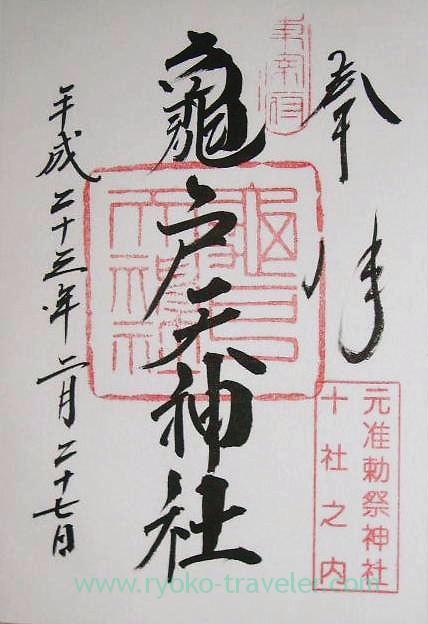 奉拝
東宰府
元准勅祭神社
十社之内
龜戸天神社
龜戸天神社
平成二十三年二月二十七日
www.ryoko-traveler.com